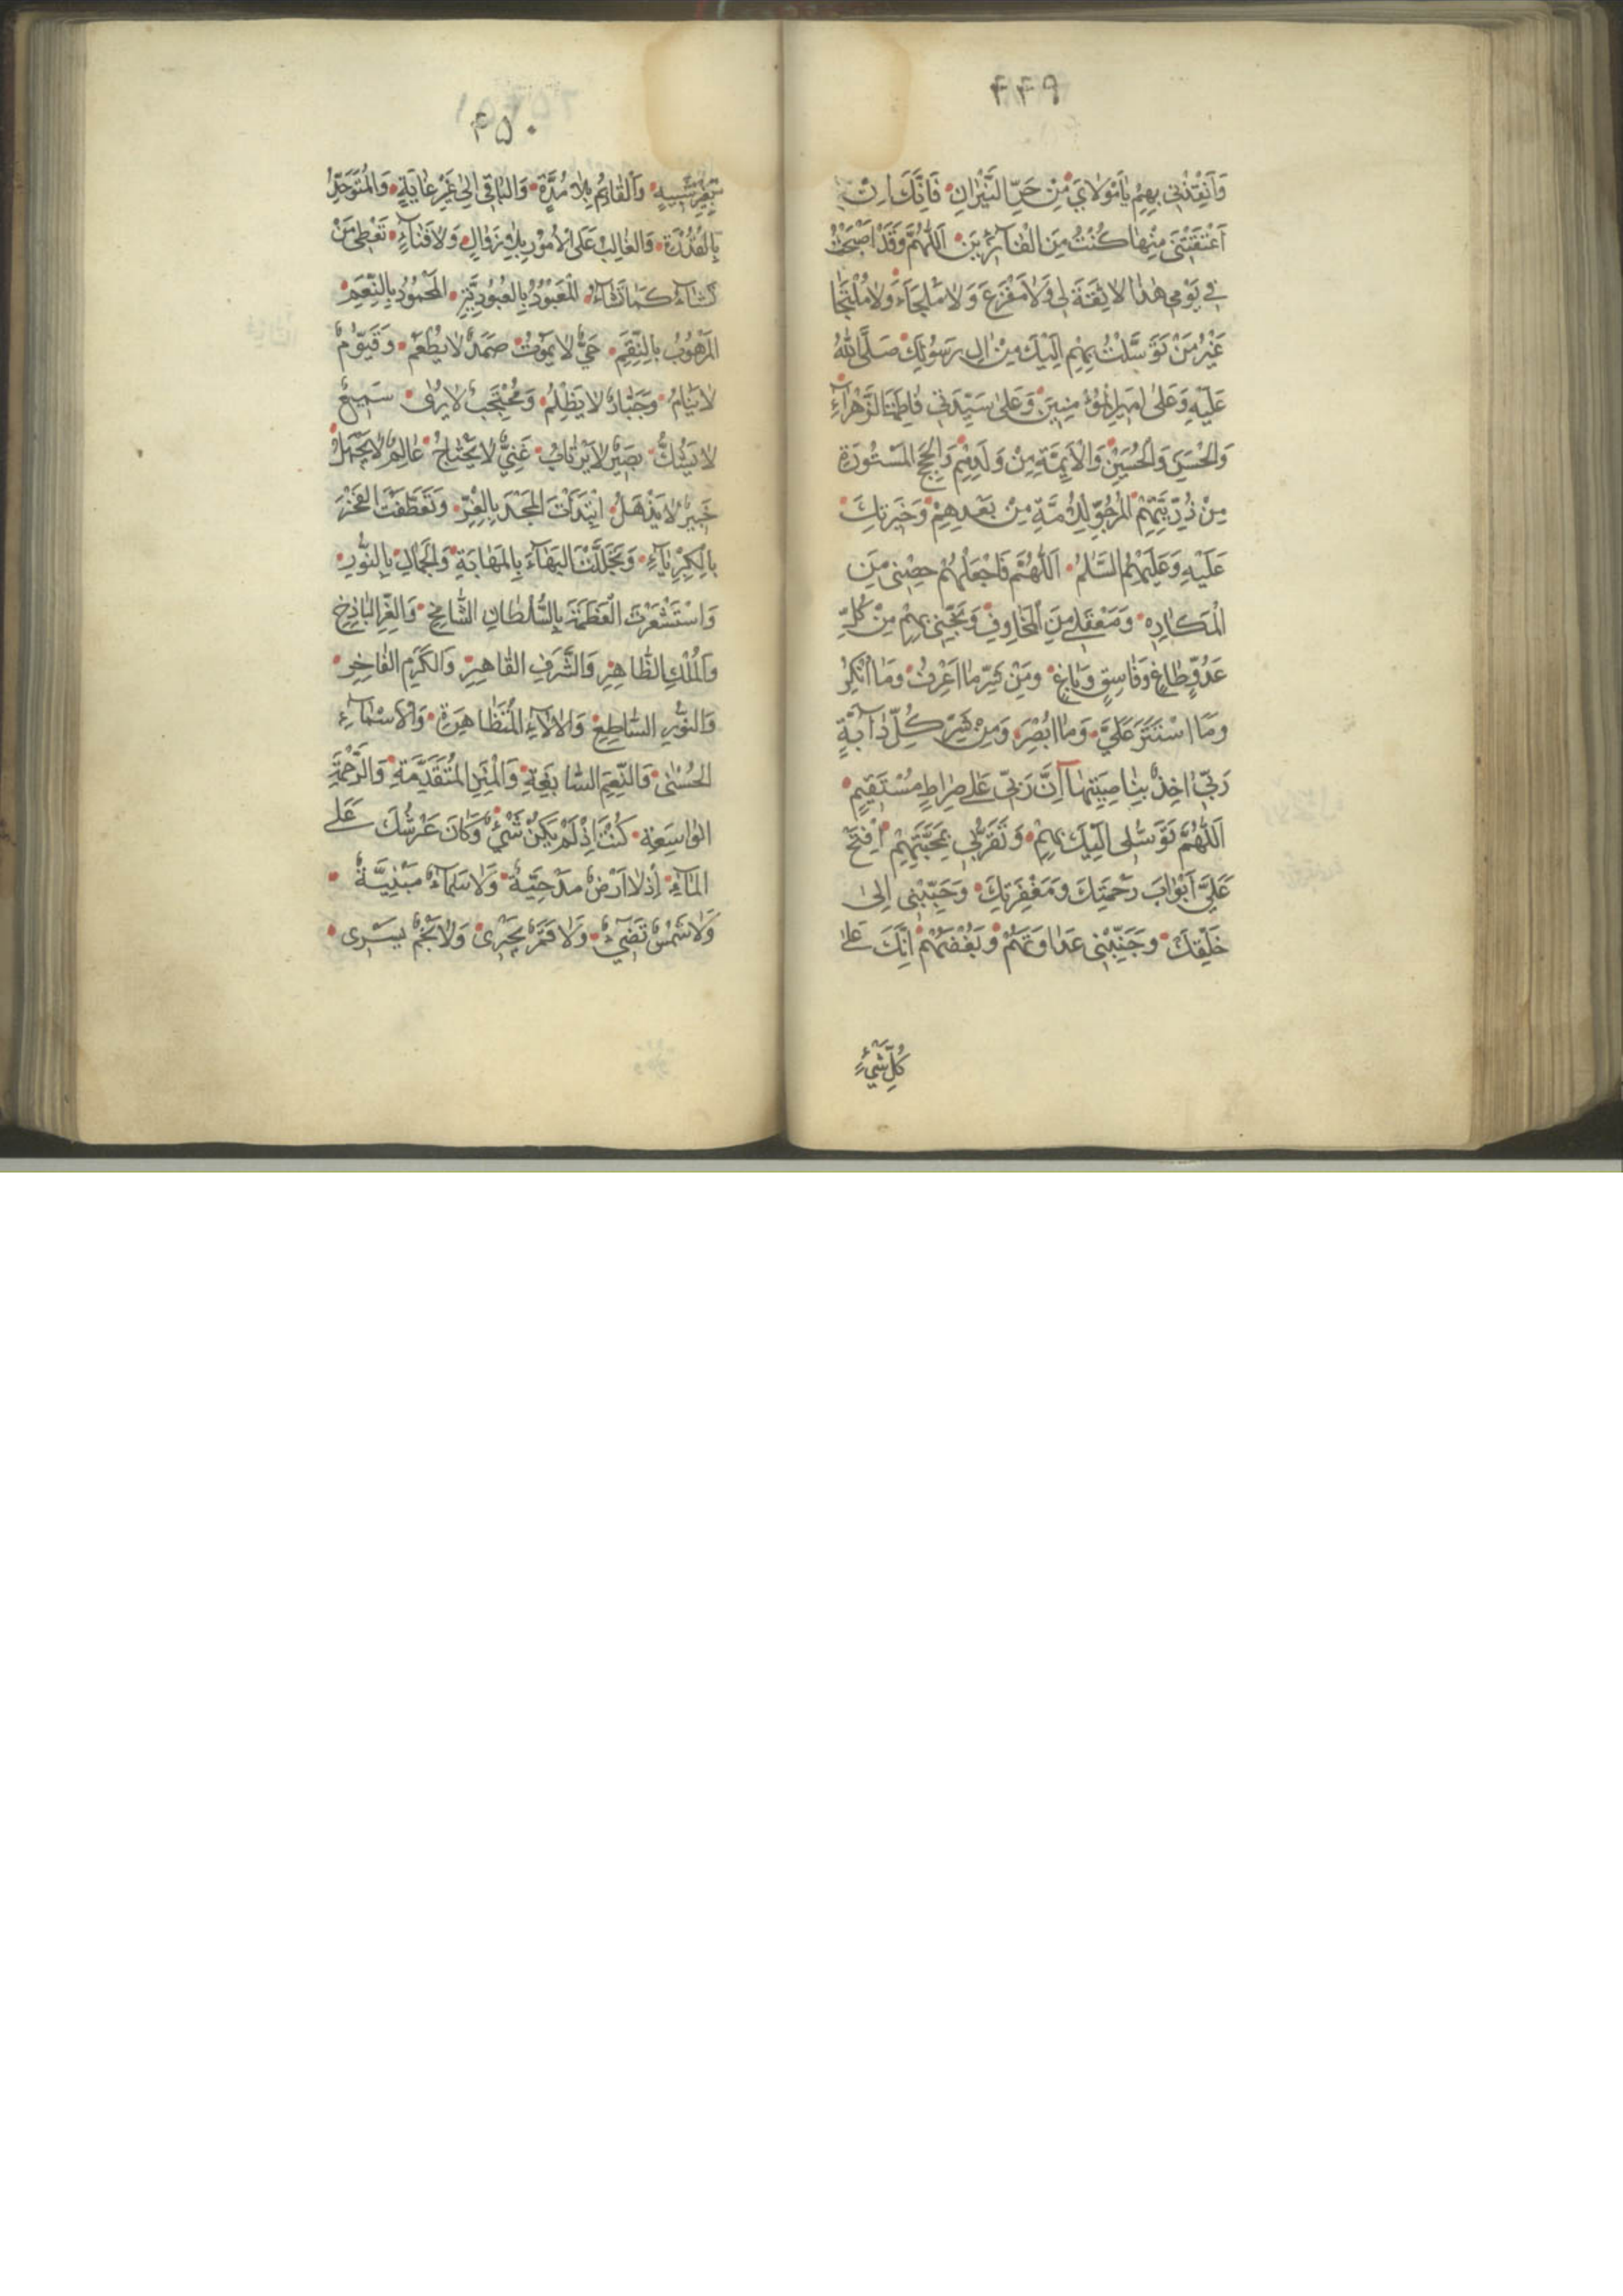 ۴۴۹
وَاَنْقِذْنِی بِهِمْ یٰا مَوْلٰایَ مِنْ حَرِّ النّیْرٰانِ فَاِنَّکَ اِنْ
اَعْتَقْتَنِی مِنْهٰا کُنْتُ مِنَ الْفٰآئِزینَ اَللّٰهُمَّ وَقَدْ اَصْبَحْتُ
فِی یَوْمِی هٰذٰا لاثِقَةَ لِی وَلاٰ مَفْزَعَ وَلاٰ مَلْجَاَءَ وَلاٰ مُلْتَجَا
غَیْرُ مَنْ تَوَسَّلْتُ بِهِمْ اِلَیْکَ مِنْ اٰلِ رَسُولِکَ صَلَّی اللّٰهُ
عَلَیْهِ وَعَلٰی امیرِالْمُؤمِنینَ وَعَلٰی سَیِّدَتِی فٰاطِمَةَ الزَّهْرٰآءِ
وَالْحَسَنِ وَالْحُسَیْنِ وَالْاَئِمَّةِ مِنْ وَلَدِهِمْ وَالْحُجَّةِ الْمَسْتُورَةِ
مِنْ ذُرِّیَّتِهِمْ الْمَرْجُوِّ لِلْاُمَّةِ مِنْ بَعْدِهِمْ وَخِیَرَتِکَ
عَلَیْهِ وَعَلَیْهِمُ السَّلٰمُ اَللّٰهُمَّ فَاجْعَلْهُمْ حِصْنِی مِنَ
الْمَکٰارِهِ وَمَعْقَلِی مِنَ الْمَخٰاوِفِ وَنَجِّنِی بِهِمْ مِنْ کُلِّ
عَدُوٍّ طٰاغٍ وَفٰاسِقٍ وَبٰاغٍ وَمِنْ شَرِّ مٰا اَعْرِفُ وَمٰا اُنْکِرُ
وَمَا اسْتَتَرَ عَلَیَّ وَمٰا اُبْصِرُ وَمِنْ شَرِّ کُلِّ دٰآبَّةٍ
رَبّی اٰخِذٌ بِنٰاصِیَتِهٰآ اِنَّ رَبّی عَلٰی صِرٰاطٍ مُسْتَقیمٍ
اَللّٰهُمَّ تَوَسُّلِی اِلَیْکَ بِهِمْ وَتَقَرُّبِی بِمَحَبَّتِهِمْ اِفْتَحْ
عَلَیَّ اَبْوٰابَ رَحْمَتِکَ وَمَغْفِرَتِکَ وَحَبِّبْنِی اِلٰی
خَلْقِکَ وَجَنِّبْنِی عَدٰاوَتَهُمْ وَبُغْضَهُمْ اِنَّکَ عَلٰی
کُلِّ شَیْءٍ
۴۵۰
بِغَیْرِ تَشْبیهٍ وَالْقٰآئِمُ بِلاٰ مُدَّةٍ وَالْبٰاقِی اِلٰی غَیْرِ غٰایَةٍ وَالْمُتَوَحِّدُ
بِالْقُدْرَةِ وَالْغٰالِبُ عَلَی الْاُمُورِ بِلاٰ زَوٰالٍ وَلاٰ فَنٰآءٍ تُعْطِی مَنْ
تَشٰآءُ کَمٰا تَشٰآءُ الْمَعْبُودُ بِالْعُبُودِیَّةِ الْمَحْمُودُ بِالنِّعَمِ
الْمَرْهُوبُ بِالنِّقَمِ حَیٌّ لاٰ یَمُوتُ صَمَدٌ لاٰ یُطْعَمُ وَقَیُّومٌ
لاٰ یَنٰامُ وَجَبّٰارٌ لاٰ یَظْلِمُ وَمُحْتَجِبٌ لاٰ یُرٰی سَمیعٌ
لاٰ یَشُکُّ بَصیرٌ لاٰ یَرْتٰابُ غَنِیٌّ لاٰ یَحْتٰاجُ عٰالِمٌ لاٰ یَجْهَلُ
خَبیرٌ لاٰ یَذْهَلُ ابْتَدَأْتَ الْمَجْدَ بِالْعِزِّ وَتَعَطَّفْتَ الْفَخْرَ
بِالْکِبْرِیٰآءِ وَتَجَلَّلْتَ الْبَهٰآءَ بِالْمَهٰابَةِ وَالْجَمٰالَ بِالنُّورِ
وَاسْتَشْعَرْتَ الْعَظَمَةَ بِالسُّلْطٰانِ الشّٰامِخِ وَالْعِزِّ الْبٰاذِخِ
وَالْمُلْکِ الظّٰاهِرِ وَالشَّرَفِ الْقٰاهِرِ وَالْکَرَمِ الْفٰاخِرِ
وَالنُّورِ السّٰاطِعِ وَالْاٰلاٰءِ الْمُتَظٰاهِرَةِ وَالْاَسْمٰآءِ
الْحُسْنٰی وَالنِّعَمِ السّٰابِغَةِ وَالْمِنَنِ الْمُتَقَدِّمَةِ وَالرَّحْمَةِ
الْوٰاسِعَةِ کُنْتَ اِذْ لَمْ یَکُنْ شَیْءٌ وَکٰانَ عَرْشُکَ عَلَی
الْمٰآءِ اِذْ لاٰ اَرْضٌ مَدْحِیَّةٌ وَلاٰ سَمٰآءٌ مَبْنِیَّةٌ
وَلاٰ شَمْسٌ تُضِیءُ وَلاٰ قَمَرٌ یَجْرِی وَلاٰ نَجْمٌ یَسْرِی